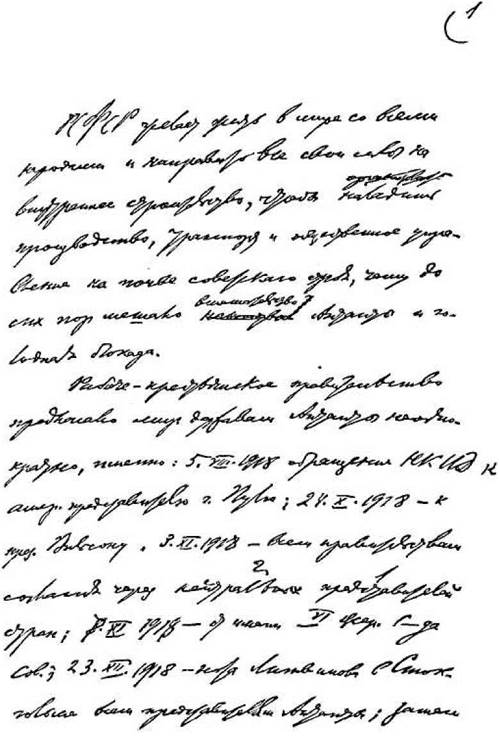 1
РСФСР желает жить в мире со всеми
народами и направить все свои силы на
внутреннее строительство, чтобы наладить
производство, транспорт и общественное управ-
ление на почве советского строя, чему до
сих пор мешало вмешательство Антанты и го-
лодная блокада.
Рабоче-крестьянское правительство
предлагало мир державам Антанты неодно-
кратно, именно: 5.VIII.1918 обращение НКИД к
амер. представителю г. Пулю; 24.X.1918 – к
през. Вильсону; 3.XI.1918 – всем правительствам
согласия через нейтральных представителей
стран; XI 1918 – от имени VI Всер. С-да
Сов.; 23.XII.1918 – нота Литвинова в Сток-
гольме всем представителям Антанты; затем